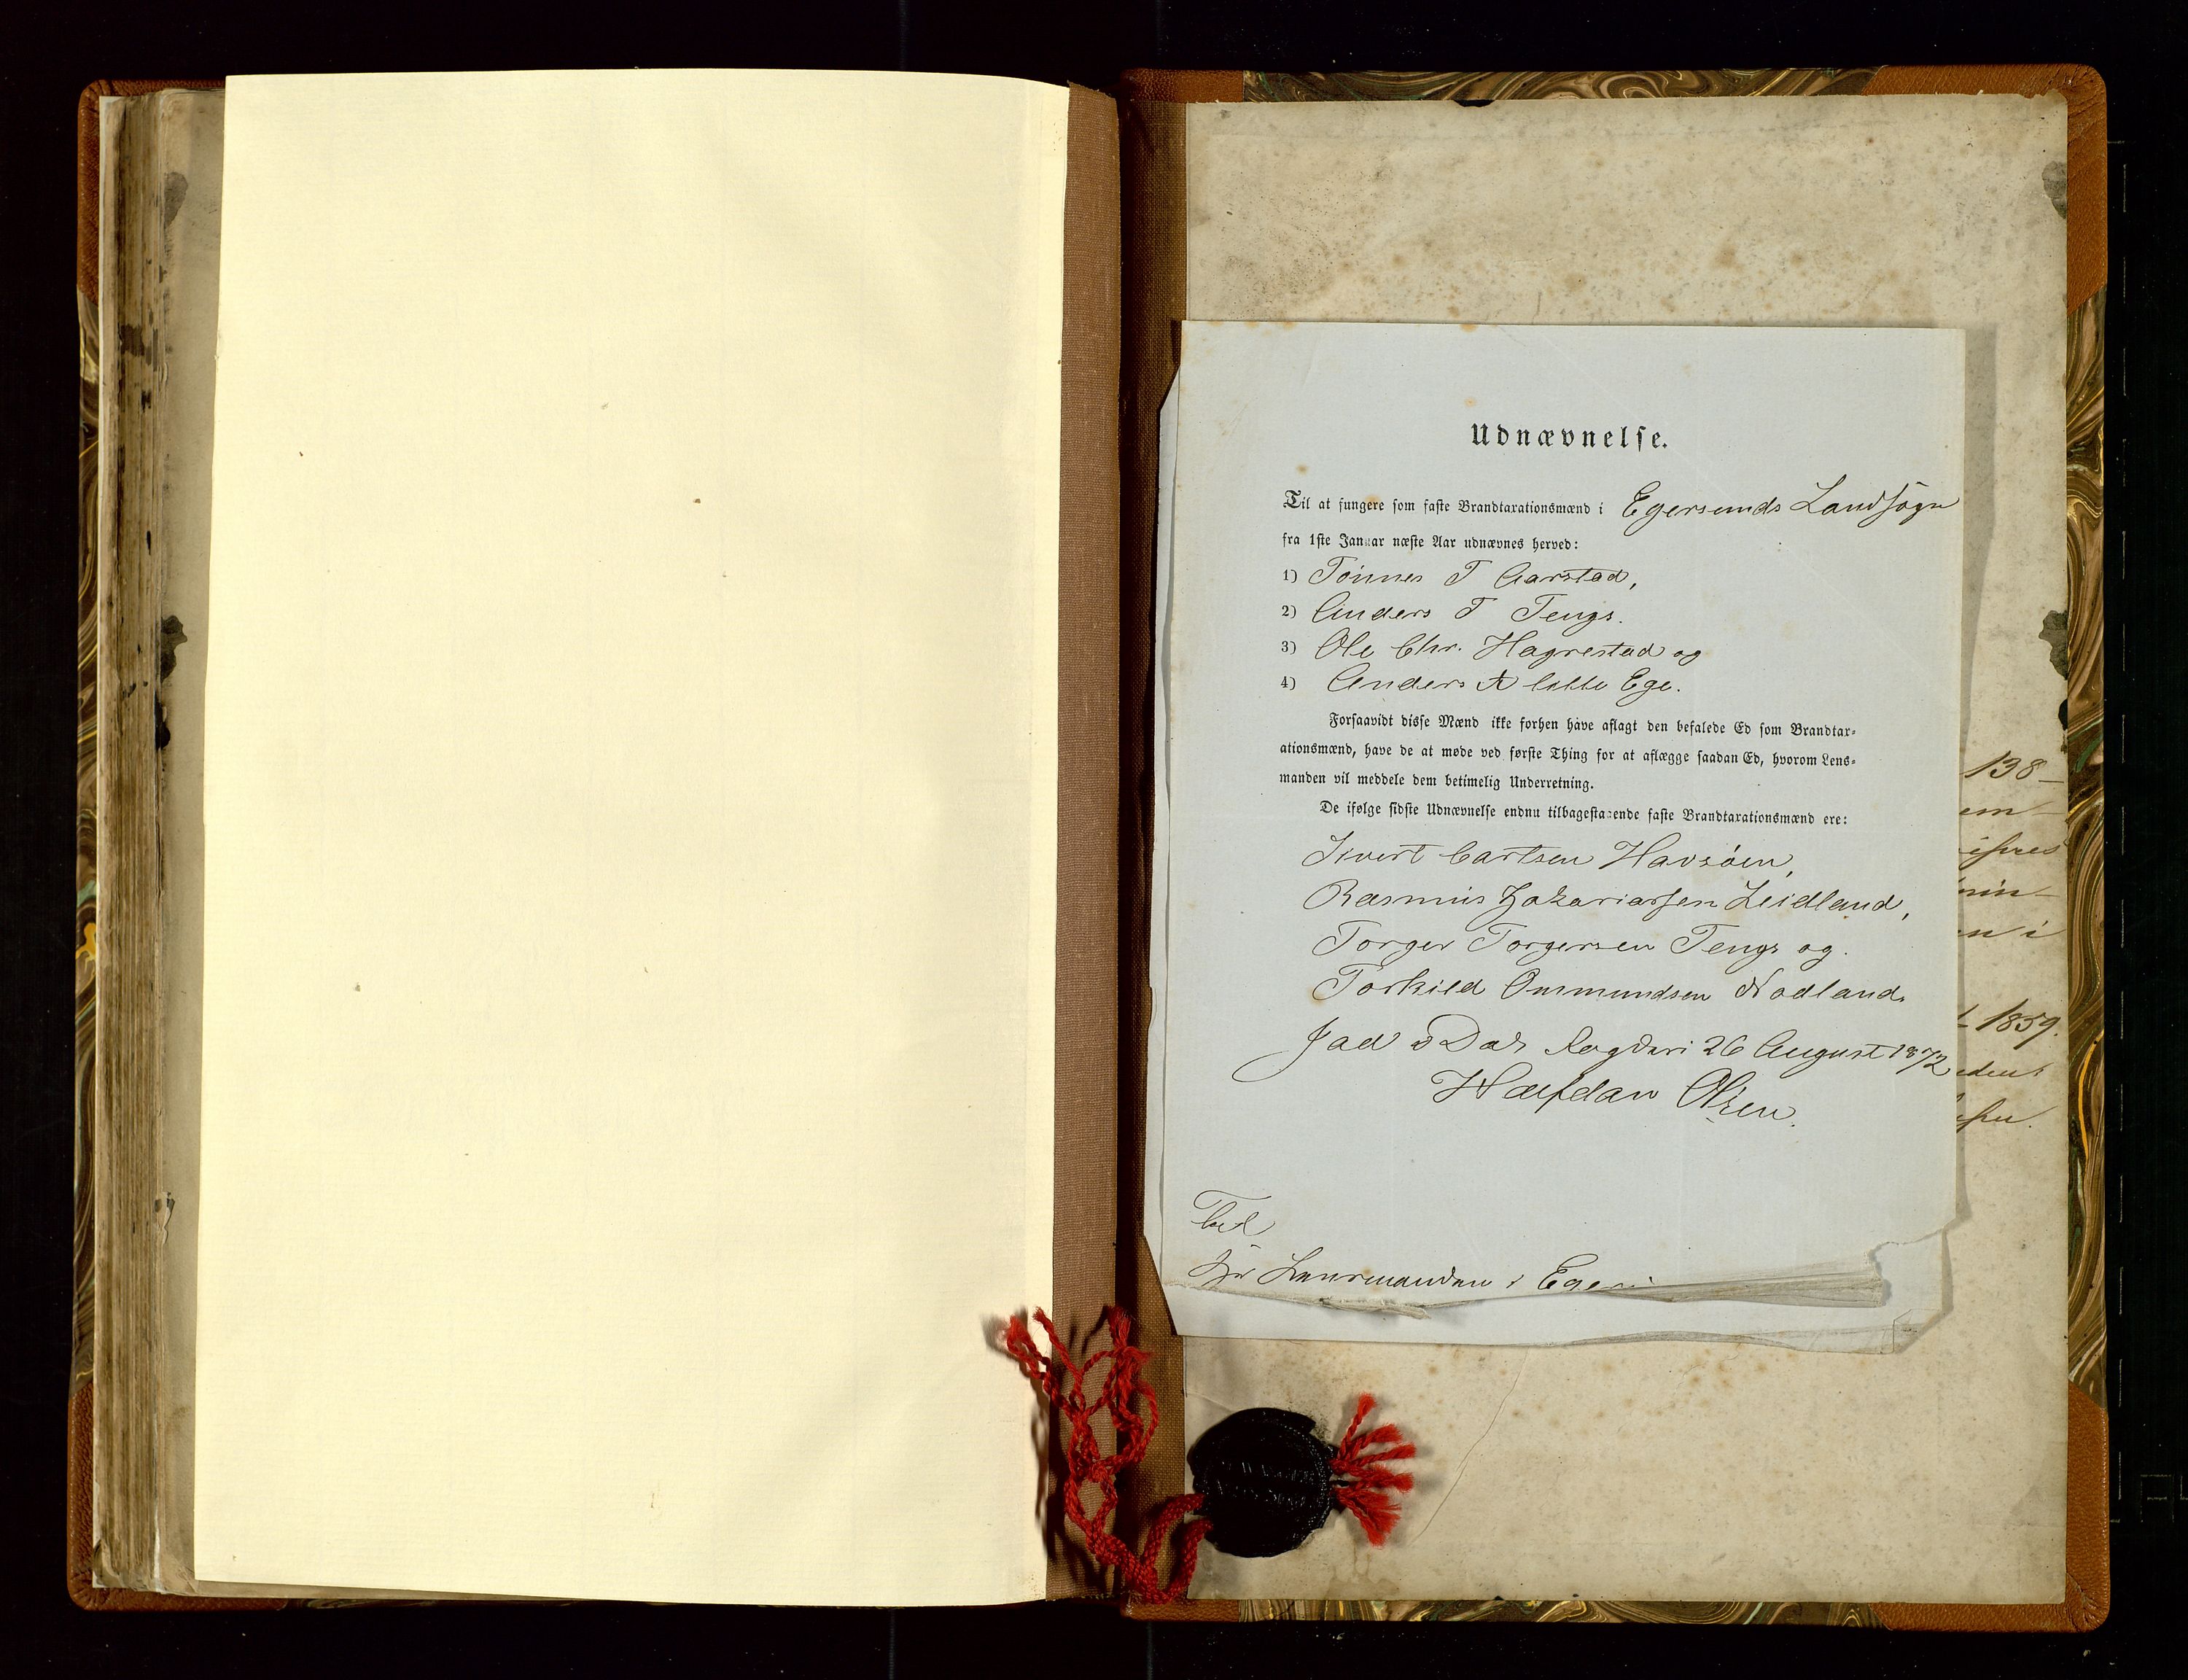 Udnævnelse.
Til at fungere som faste Brandtaxationsmænd i Egersunds Landsogn
fra 1ste Januar næste Aar udnævnes herved:
1) Tönnes T Aarstad,
2) Anders T Tengs.
3) Ole Chr. Hagrestad og
4) Anders A lille Ege.
Forsaavidt disse Mænd ikke forhen have aflagt den befalede Ed som Brandtax-
ationsmænd, have de at møde ved første Thing for at aflægge saadan Ed, hvorom Lens-
manden vil meddele dem betimelig Underretning.
De ifølge sidste Udnævnelse endnu tilbagestaaende faste Brandtaxationsmænd ere:
Sivert Havsöen,
Rasmus Zakariassen Leidland,
Torger Torgersen Tengs og
Torkild Ommundsen Nodland.
Jad & Dal. Sogderi 26 August 1872
Halfdan Olsen.
Til
Hr Lensmanden i Eger
138-
em-
n i
1859.